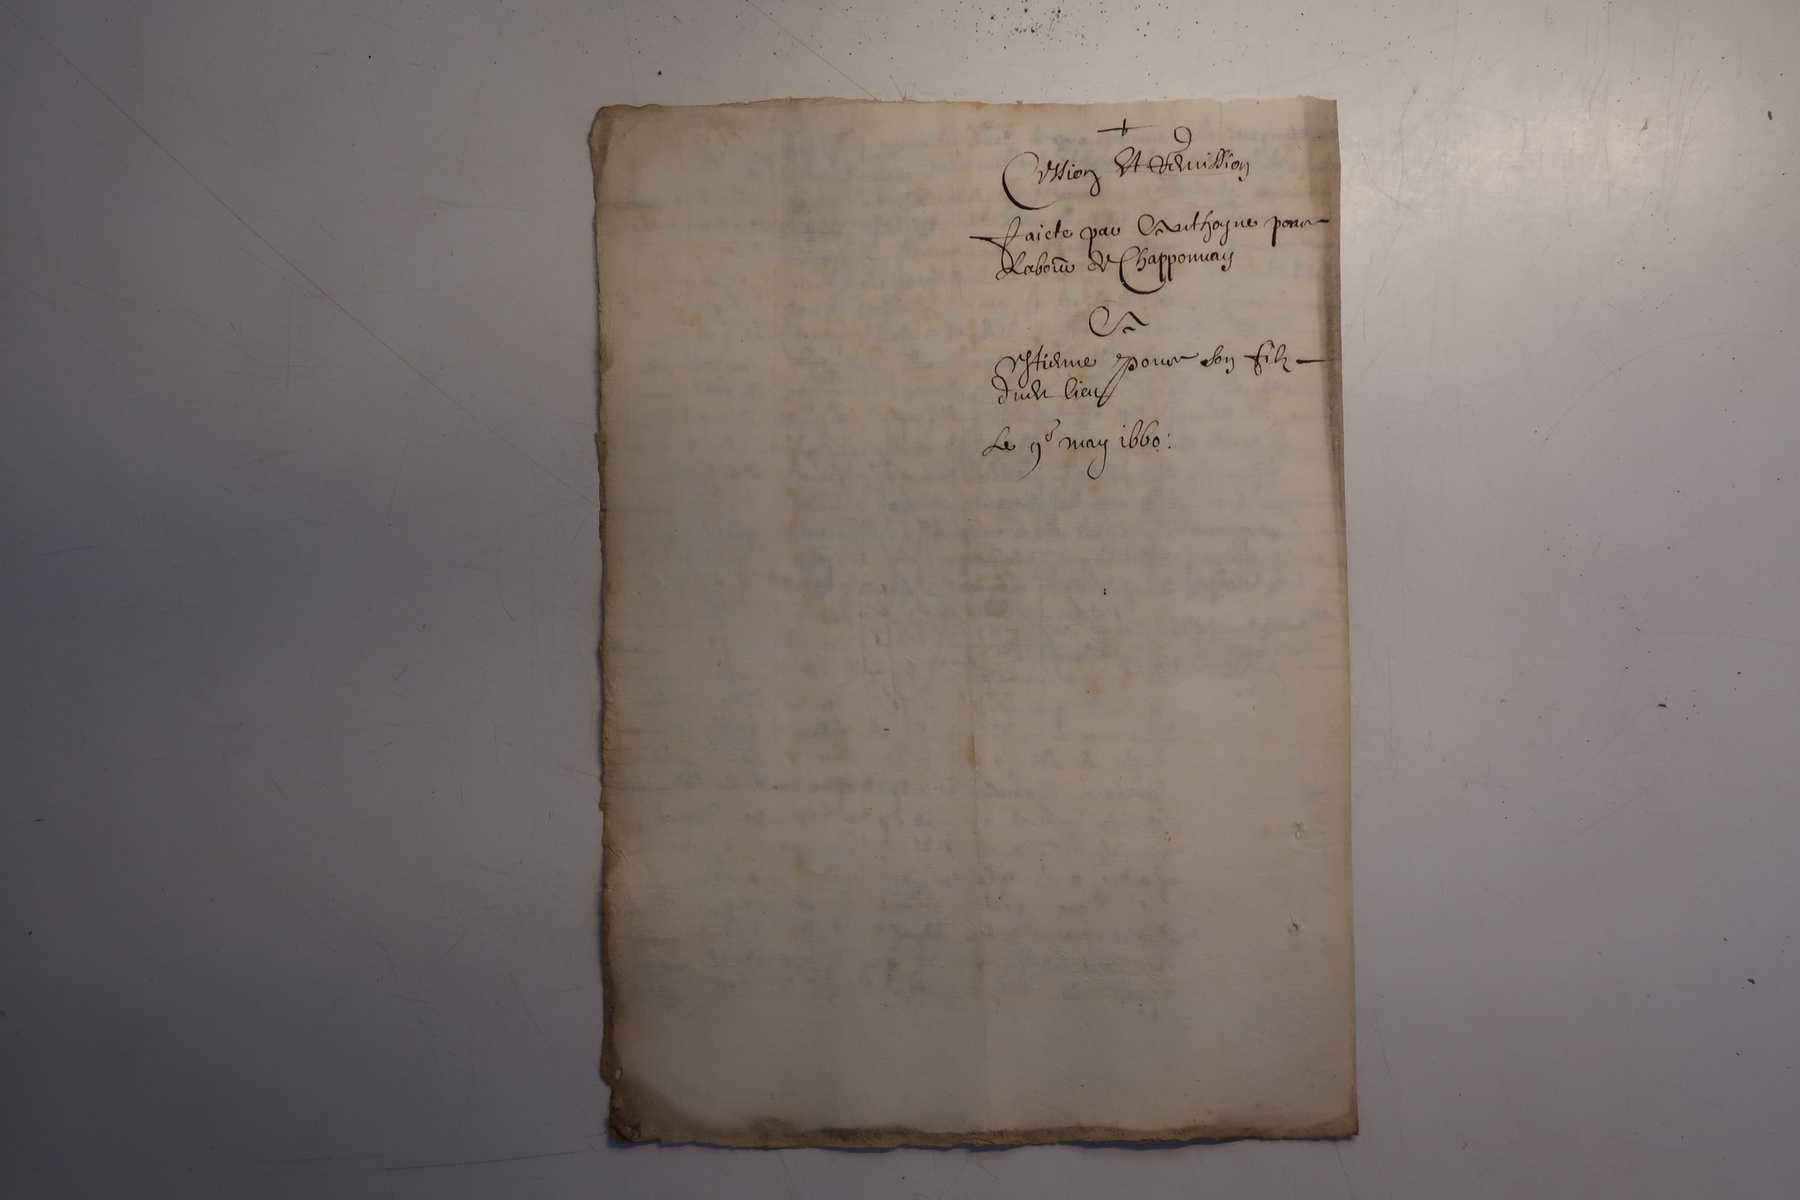 +
Cession Et Remission
faicte par Anthoyne pour
Labour de Chapponnay
A
Estienne pour son filz
dudt lieu
Le 9e may 1660: